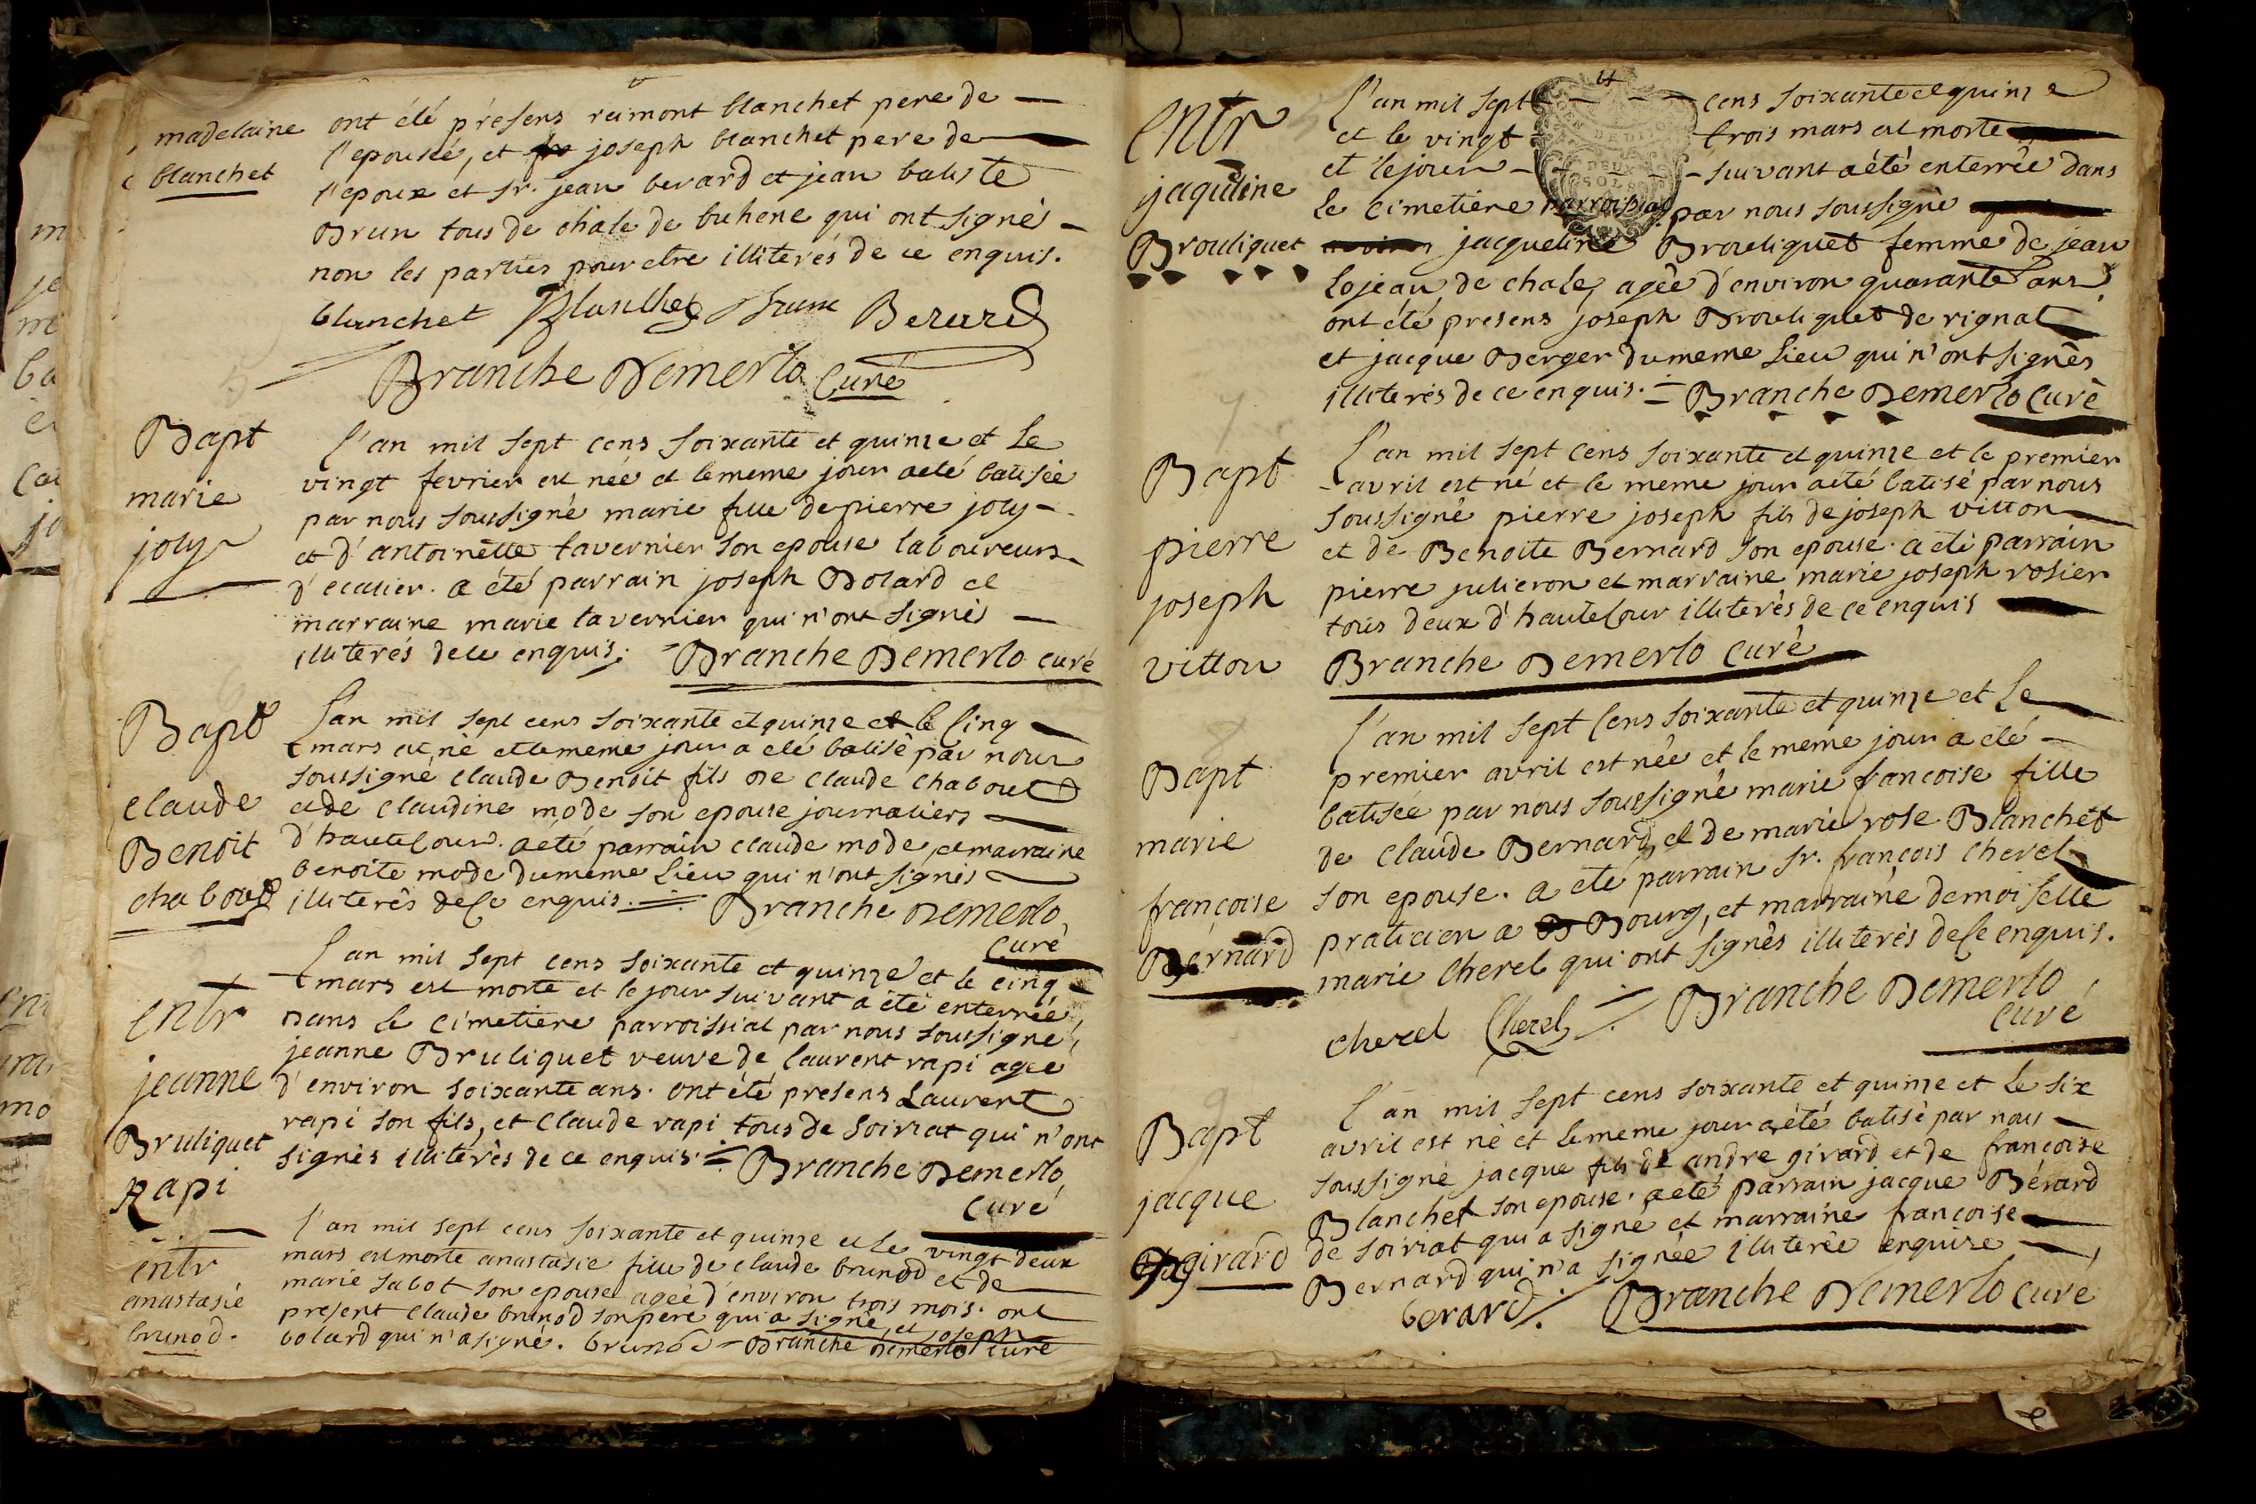 madelaine
blanchet
ont été présens reimont blanchet pere de
l'epousée, et joseph blanchet pere de
l'epoux et sr. jean berard et jean batiste
Brun tous de chale de buhene qui ont signés
non les parties pour etre illiterés de ce enquis.
blanchet Blanchet Brun Berard
Branche Demerlo curé
Bapt
marie
joly
l'an mil sept cens soixante et quinze et le
vingt fevrier est née et le meme jour a eté batisée
par nous soussigné marie fille de pierre joly
et d'antoinette tavernier son epouse laboureurs
d'ecatier. a été parrain joseph Bolard et
marraine marie tavernier qui n'ont signés
illiterés de ce enquis. Branche Demerlo curé
Bapt
claude
Benoit
chaboud
L'an mil sept cens soixante et quinze et le cinq
mars est né et le meme jour a eté batisé par nous
soussigné claude Benoit fils de claude chaboud
et de claudine mode son epouse journaliers
d'hautecour. a été parrain claude mode et marraine
benoite mode du meme lieu qui n'ont signés
illiterés de ce enquis. Branche Demerlo
curé
Entr
jeanne
Bruliquet
rapi
L'an mil sept cens soixante et quinze et le cinq
mars est morte et le jour suivant a été enterrée
dans le cimetiere parroissial par nous soussigné
jeanne Bruliquet veuve de laurent rapi agée
d'environ soixante ans. ont été presens Laurent
rapi son fils, et claude rapi tous de soiriat qui n'ont
signés illiterés de ce enquis. Branche Demerlo
curé
entr
anastasie
brunod.
l'an mil sept cens soixante et quinze et le vingt deux
mars est morte anastasie fille de claude brunod et de
marie sabot son epouse agée d'environ trois mois. ont
present claude brunod son pere qui a signé et joseph
bolard qui n'a signé. brunod Branche Demerlo curé
Entr
jaqueline
Brouliquet
l'an mil sept cens soixante et quinze
et le vingt trois mars est morte
et le jour suivant a été enterrée dans
le cimetiere parroissial par nous soussigné
jacqueline Brouliquet femme de jean
lojean de chale, agée d'environ quarante ans
ont été presens joseph Brouliquet de rignat
et jacque Berger du meme lieu qui n'ont signés
illiterés de ce enquis. Branche Demerlo curé
Bapt
pierre
joseph
vitton
L'an mil sept cens soixante et quinze et le premier
avril est né et le meme jour a été batisé par nous
soussigné pierre joseph fils de joseph vitton
et de Benoite Bernard son epouse. a été parrain
pierre julieron et marraine marie joseph rosier
tous deux d'hautecour illiterés de ce enquis
Branche Demerlo curé
Bapt
marie
françoise
Bernard
l'an mil sept cens soixante et quinze et le
premier avril est née et le meme jour a été
batisée par nous soussigné marie francoise fille
de claude Bernard et de marie rose Blanchet
son epouse. a eté parrain sr. françois cherel
praticien a Bourg, et marraine demoiselle
marie cherel qui ont signés illiterés de ce enquis.
cherel Cherel Branche Demerlo
curé
Bapt
jacque
girard
l'an mil sept cens soixante et quinze et le six
avril est né et le meme jour a été batisé par nous
soussigné jacque fils de andre girard et de françoise
Blanchet son epouse. a eté parrain jacque Bérard
de soiriat qui a signé et marraine françoise
Bernard qui n'a signée illiterée enquise
berard Branche Demerlo curé